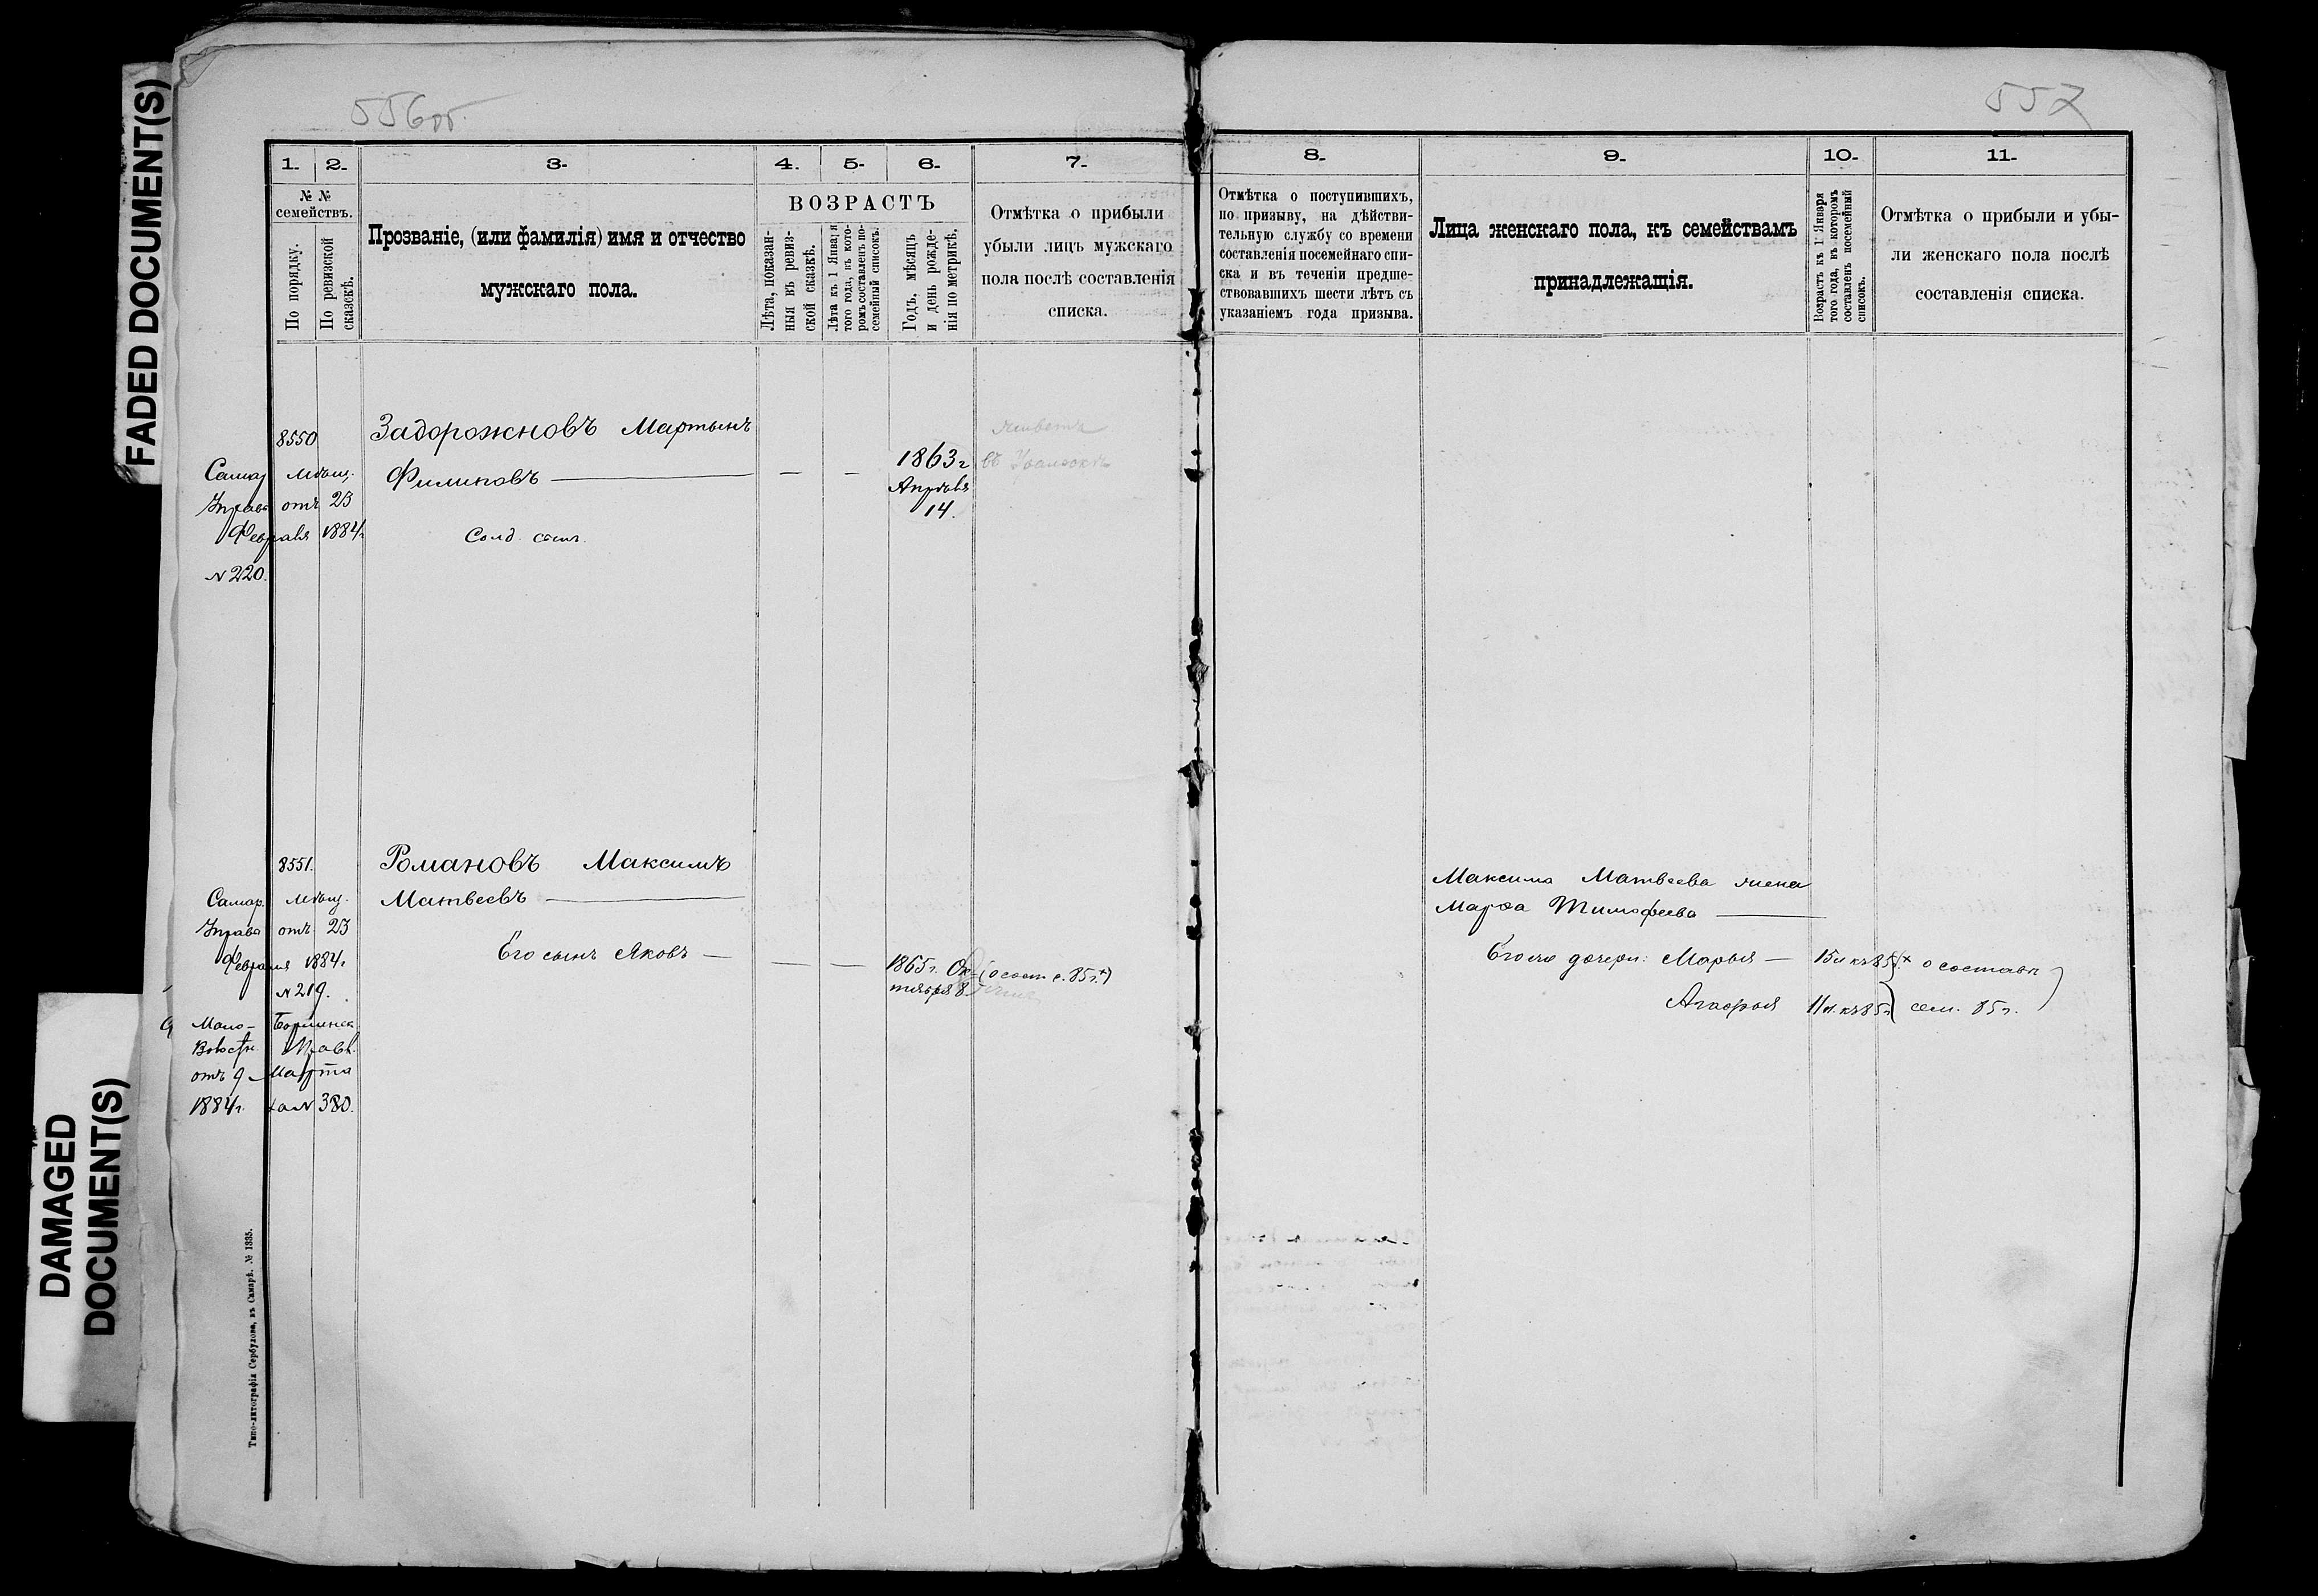 FADED DOCUMENT(S)
DAMAGED
DOCUMENT(S)
556об.
1. 2. 3. 4. 5. 6. 7.
№ №
семействъ.
По порядку.
По ревизской
сказскѣ.
Прозваніе, (или фамилія) имя и отчество
мужскаго пола.
ВОЗРАСТЪ
Лѣта, показан-
ныя въ ревиз-
ской сказкѣ.
Лѣта къ 1 Января
того года, въ кото-
ромъ составленъ по-
семейный списокъ.
Годъ, мѣсяцъ
и день рожде-
нія по метрикѣ.
Отмѣтка о прибыли
убыли лицъ мужскаго
пола послѣ составленія
списка.
8550
Задорожновъ Мартынъ
Филиповъ
Солд. сынъ.
— —
1863 г
Апрѣля
14.
живетъ
въ
Самар мѣщ.
Управа отъ 23
Февраля 1884 г
№ 220.
8551.
Романовъ Максимъ
Матвеевъ
Его сынъ Яковъ —
— —
1865 г. Ок-
тября 8.
(о сост с. 85 г.)
Самар. мѣщ.
Управа отъ 23
Февраля 1884 г
№ 219.
Мало-
Волостн. Правл.
отъ 9 Марта
1884 г. за № 380.
Типо-литографія Сербулова, въ Самарѣ. № 1335.
557
8. 9. 10. 11.
Отмѣтка о поступившихъ,
по призыву, на дѣйстви-
тельную службу со времени
составленія посемейнаго спи-
ска и въ теченіи предше-
ствовавшихъ шести лѣтъ съ
указаніемъ года призыва.
Лица женскаго пола, къ семействамъ
принадлежащія.
Возрастъ къ 1 Января
того года, въ которомъ
составленъ посемейный
списокъ.
Отмѣтка о прибыли и убы-
ли женскаго пола послѣ
составленія списка.
Максима Матвеева жена
Марѳа Тимофеева
Его же дочери: Марья — 15 л къ 85 г. о составл
Агафья 11 л. къ 85 г сем. 85 г.